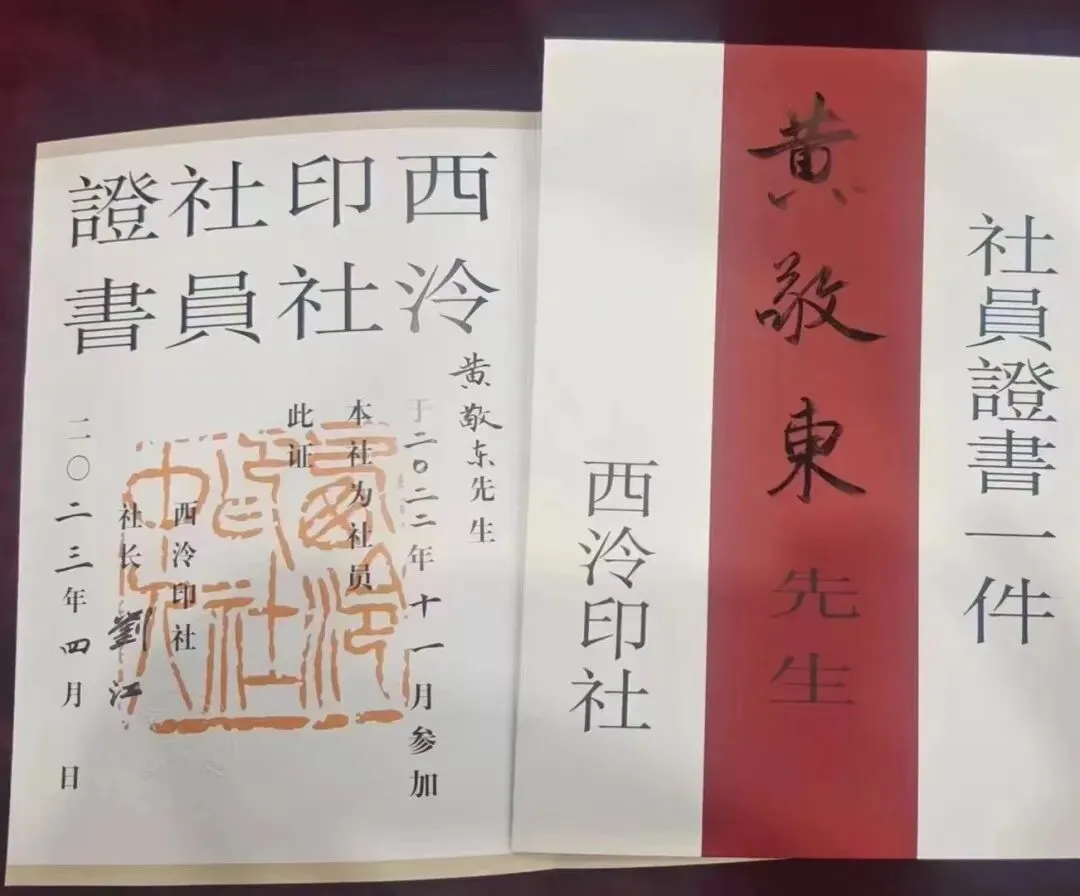 西泠
印社
社員
證書
黄敬东先生
于二〇二二年十一月参加
本社为社员
此证
西泠印社
社长 劉江
二〇二三年四月 日
西泠印社中人
社員證書一件
黄敬東先生
西泠印社